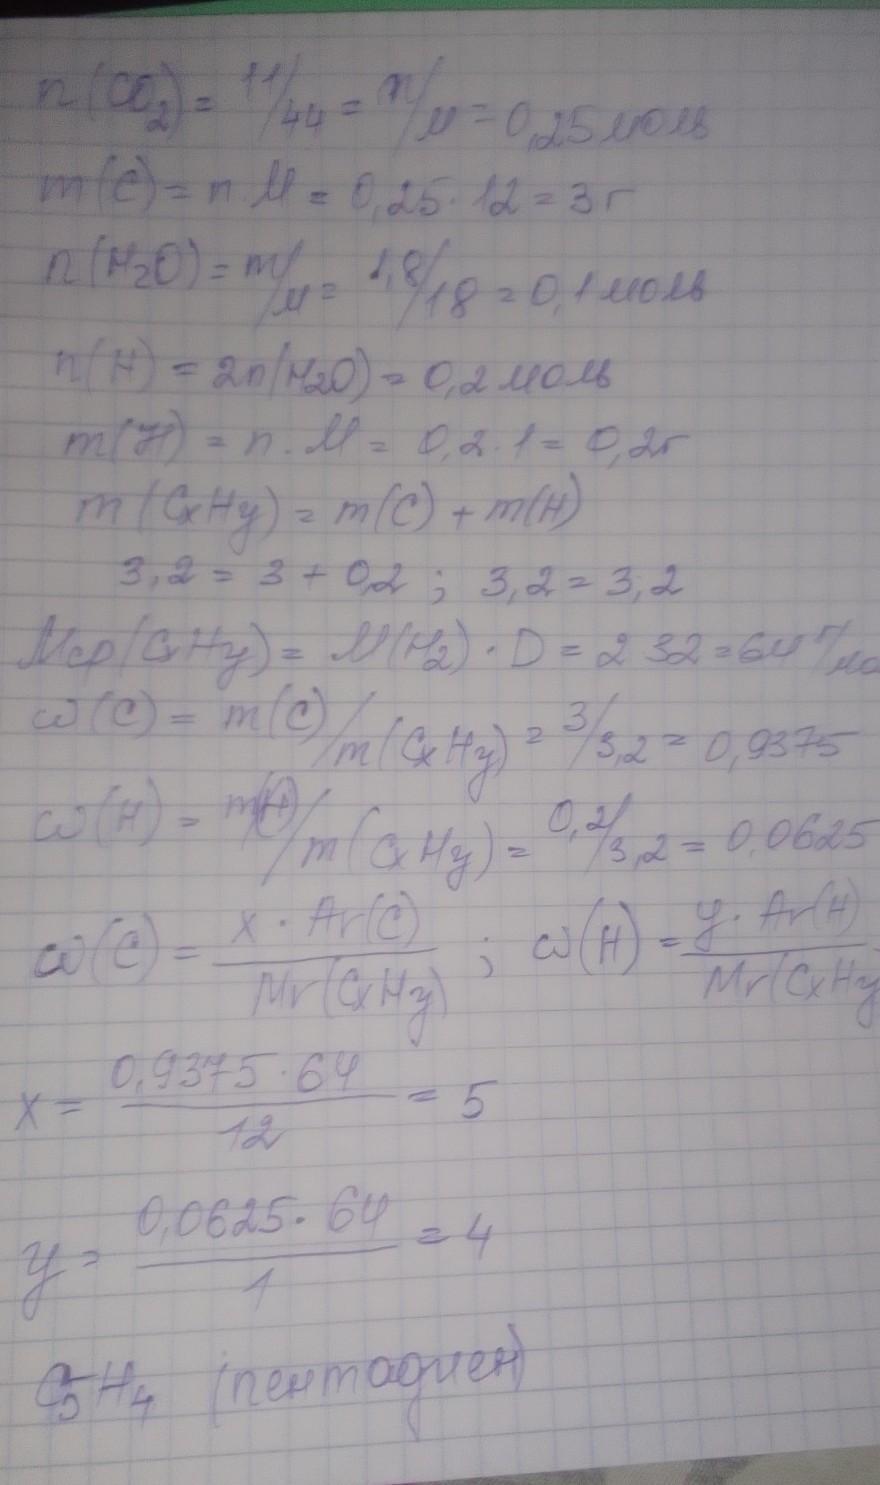 n(CO₂) = 11/44 = m/M = 0,25 моль
m(C) = n · M = 0,25 · 12 = 3 г
n(H₂O) = m/M = 1,8/18 = 0,1 моль
n(H) = 2n(H₂O) = 0,2 моль
m(H) = n · M = 0,2 · 1 = 0,2г
m(CxHy) = m(C) + m(H)
3,2 = 3 + 0,2 ; 3,2 = 3,2
Mср(CxHy) = M(H₂) · D = 2 32 = 64 г/мо
ω(C) = m(C)/m(CxHy) = 3/3,2 = 0,9375
ω(H) = m(H)/m(CxHy) = 0,2/3,2 = 0,0625
ω(C) = x · Ar(C)/Mr(CxHy) ; ω(H) = y · Ar(H)/Mr(CxHy
x = 0,9375 · 64/12 = 5
y = 0,0625 · 64/1 = 4
C₅H₄ (пентадиен)